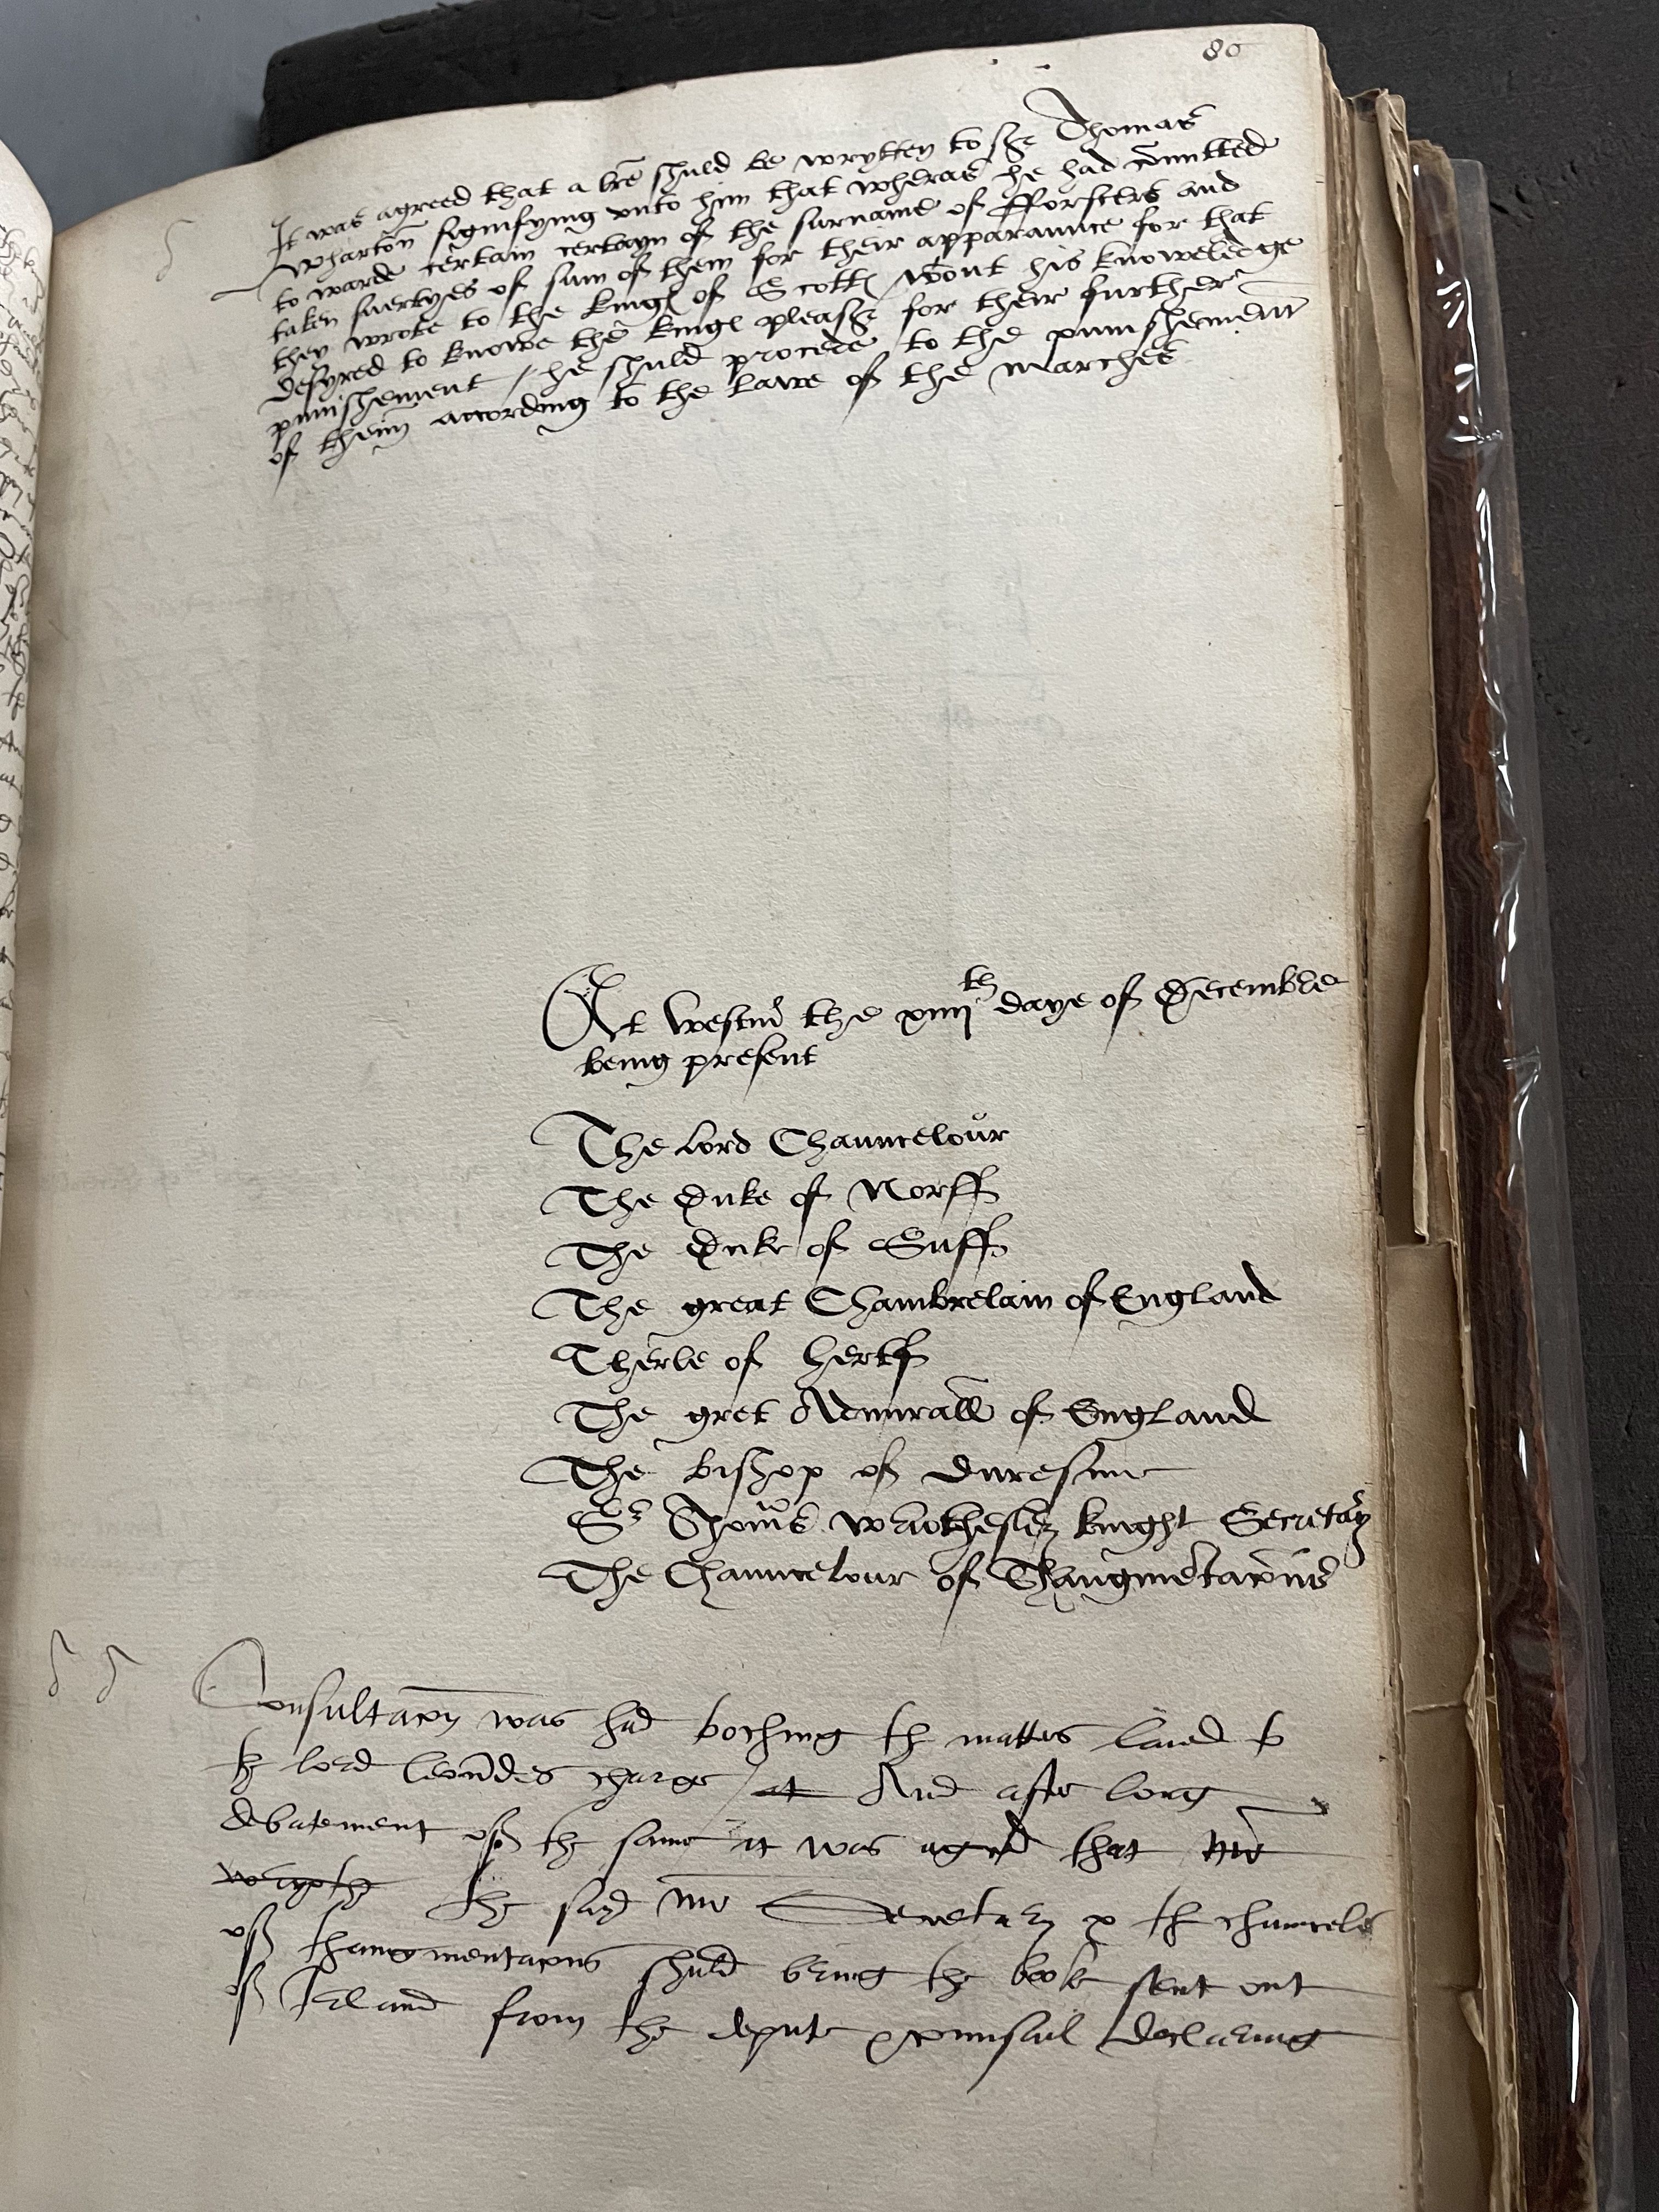 80
It was agreed that a lre shuld be wrytten to Sr Thomas
Wharton signifying unto him that wheras he had comitted
to warde certain certayn of the surname of fforsters and
taken suertyes of sum of them for their apparaunce for that
they wrote to the king of Scott wout his knoweledge
desyred to knowe the king pleasr for their further
punishement / he shuld procede to the punishement
of theim according to the lawe of the marches
At Westm the xiiijth daye of Decembre
being present
The Lord Chauncelour
The Duke of Norff
The Duke of Suff
The great Chambrelain of England
Therle of Hertf
The gret Admirall of England
The bishop of Duresme
Sr Thoms Wriothesley knight Secretary
The Chauncelour of Thaugmetacons
Consultacon was had toching the matters laied to
the lord Leonardes charge / at And after long
debatement upon the same it was agreed that Mr
wryothe the sayd Mr Secretary & the chauncelor
of thaugmentacons shuld bring the book sent out
of Ireland from the depute & counsail declaring